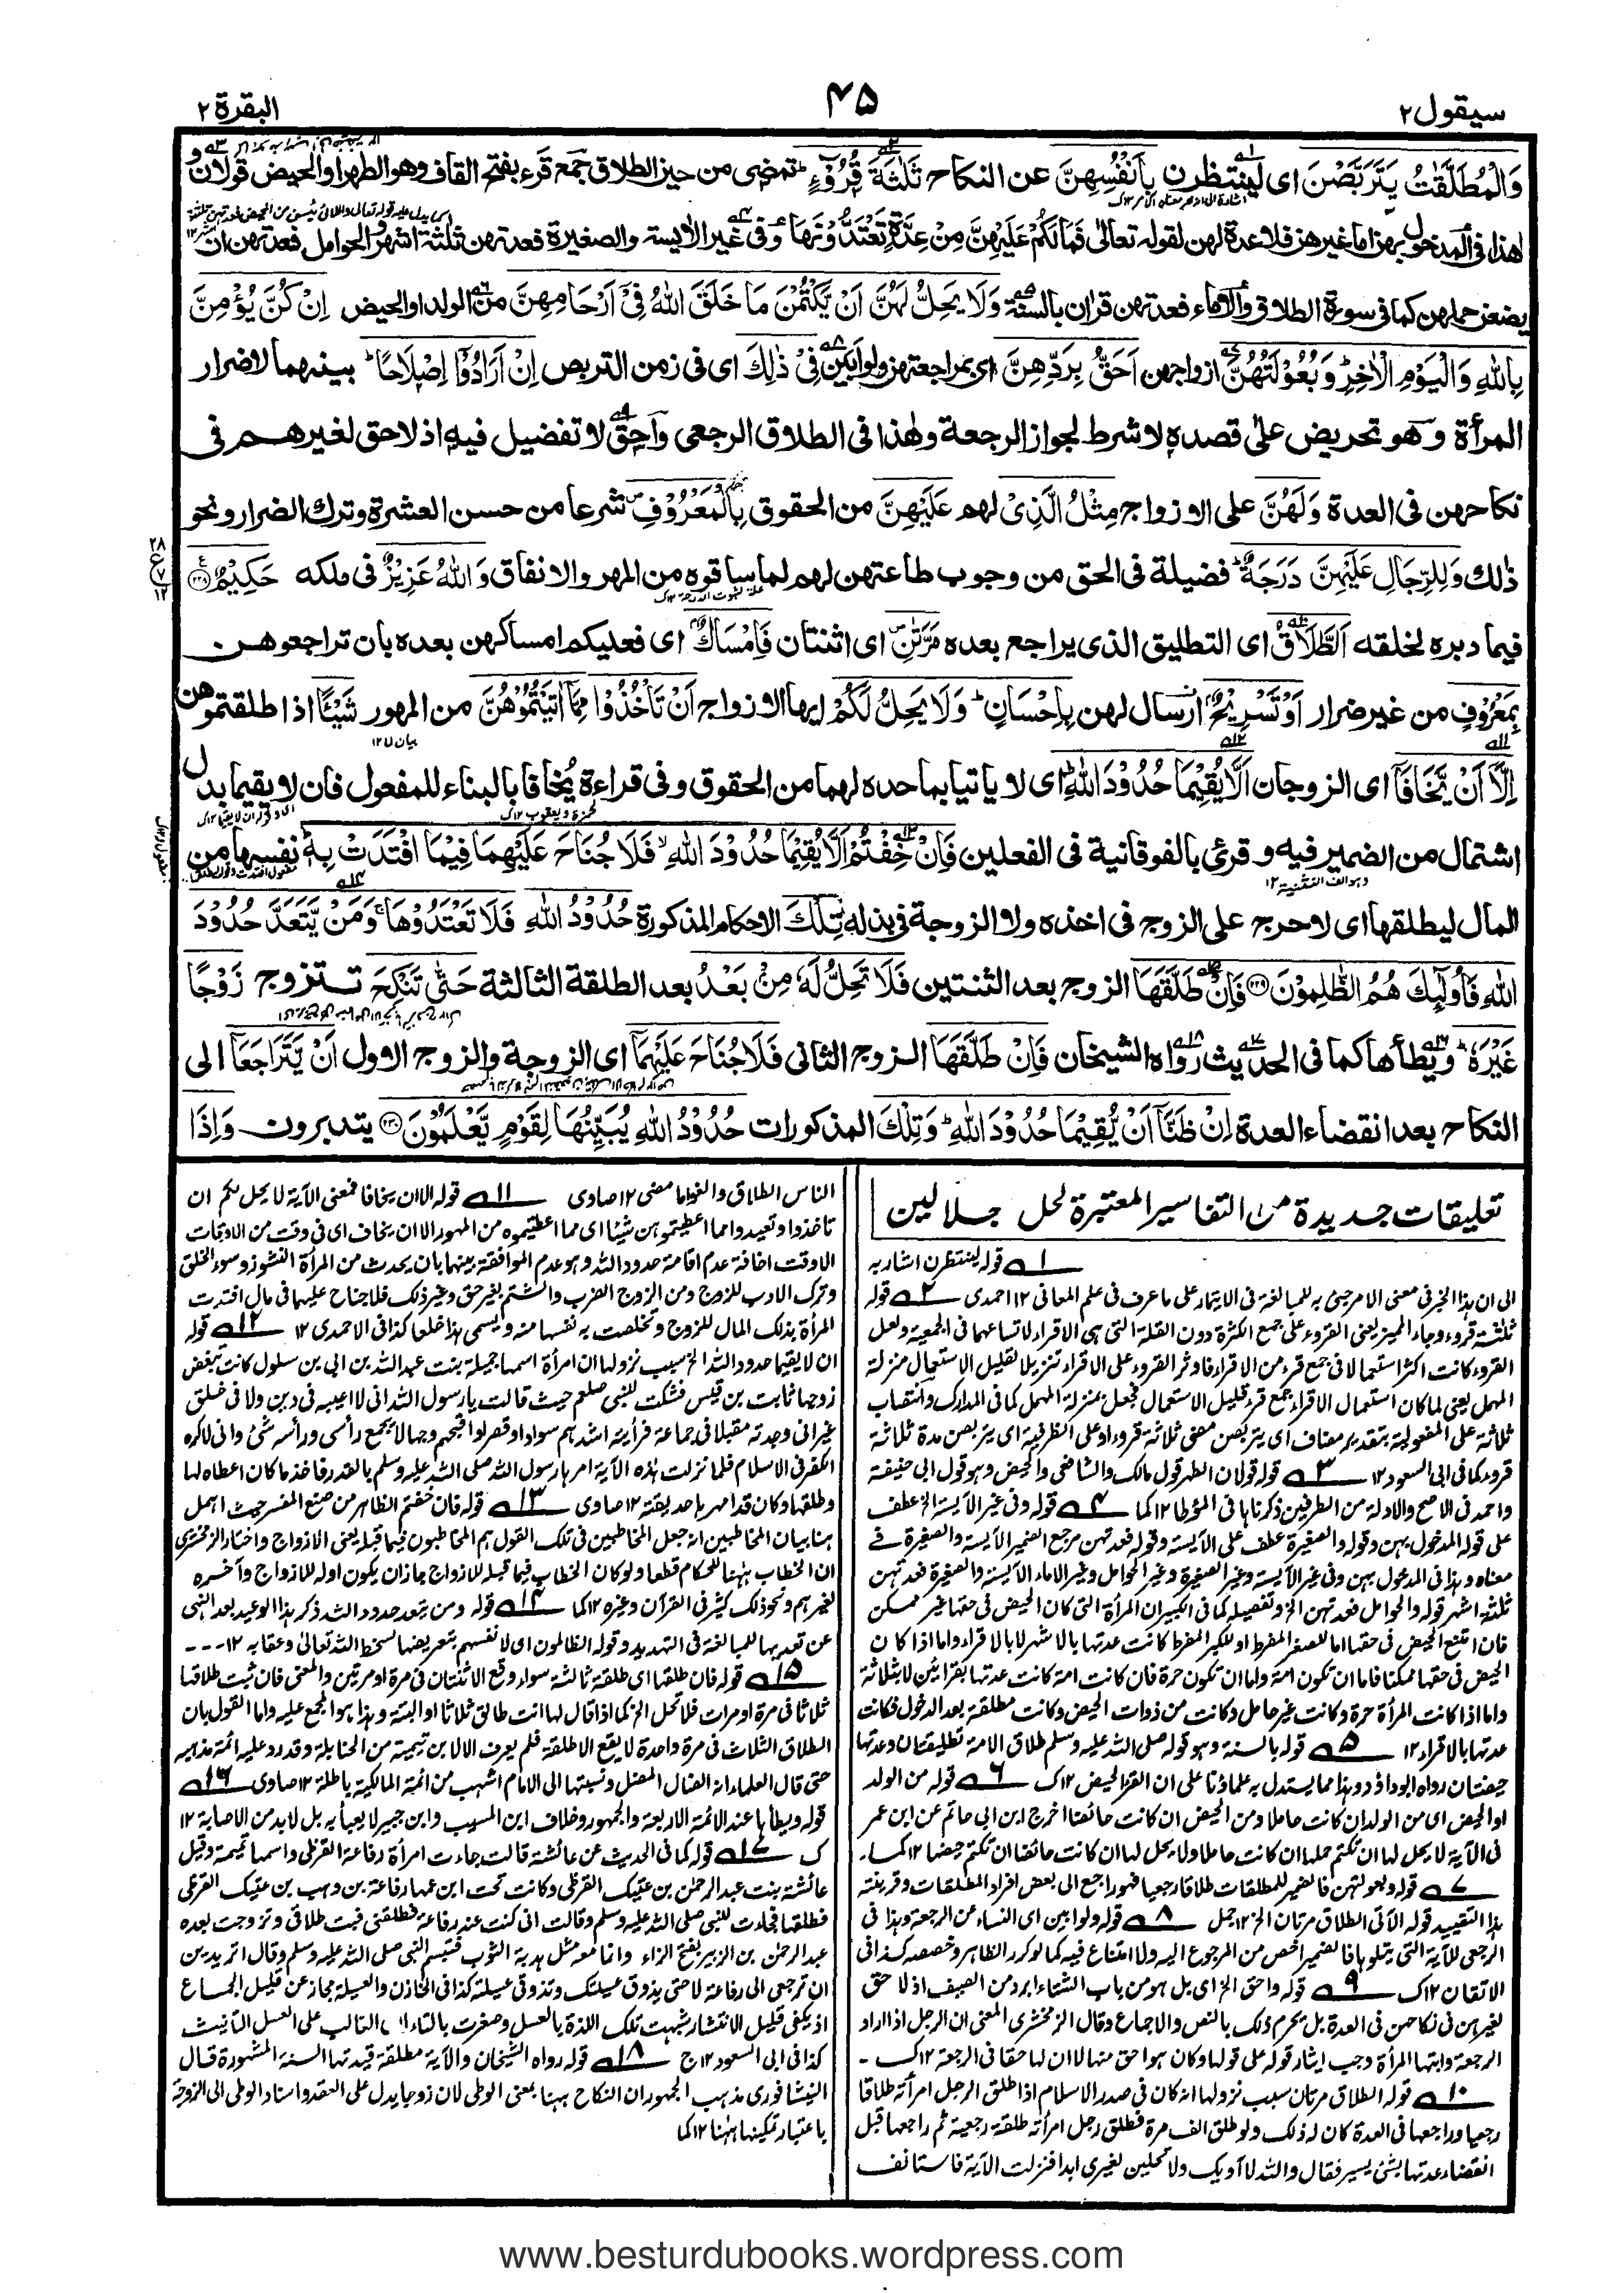 سيقول٢
٤٥
البقرة ٢
وَالْمُطَلَّقٰتُ يَتَرَبَّصْنَ اى لينتظرن بِاَنْفُسِهِنَّ عن النكاح ثَلٰثَةَ قُرُوْٓءٍ تمضى من حين الطلاق جمع قرء بفتح القاف وهو الطهر او الحيض قولان و
هذا فى المدخول بهن اما غيرهن فلا عدة لهن لقوله تعالى فَمَا لَكُمْ عَلَيْهِنَّ مِنْ عِدَّةٍ تَعْتَدُّوْنَهَا وفى غير الآيسة والصغيرة فعدتهن ثلثة اشهر والحوامل فعدتهن ان
يضعن حملهن كما فى سورة الطلاق والاماء فعدتهن قران بالسنة وَلَا يَحِلُّ لَهُنَّ اَنْ يَّكْتُمْنَ مَا خَلَقَ اللّٰهُ فِىْٓ اَرْحَامِهِنَّ من الولد او الحيض اِنْ كُنَّ يُؤْمِنَّ
بِاللّٰهِ وَالْيَوْمِ الْاٰخِرِ وَبُعُوْلَتُهُنَّ ازواجهن اَحَقُّ بِرَدِّهِنَّ اى بمراجعتهن ولو ابين فِىْ ذٰلِكَ اى فى زمن التربص اِنْ اَرَادُوْٓا اِصْلَاحًا بينهما لا ضرار
المرأة وهو تحريض على قصده لا شرط لجواز الرجعة وهذا فى الطلاق الرجعى واحق لا تفضيل فيه اذ لا حق لغيرهم فى
نكاحهن فى العدة وَلَهُنَّ على الازواج مِثْلُ الَّذِىْ لهم عَلَيْهِنَّ من الحقوق بِالْمَعْرُوْفِ شرعا من حسن العشرة وترك الضرار ونحو
ذلك وَلِلرِّجَالِ عَلَيْهِنَّ دَرَجَةٌ فضيلة فى الحق من وجوب طاعتهن لهم لما ساقوه من المهر والانفاق وَاللّٰهُ عَزِيْزٌ فى ملكه حَكِيْمٌ ٢٢٨
فيما دبره لخلقه اَلطَّلَاقُ اى التطليق الذى يراجع بعده مَرَّتٰنِ اى اثنتان فَاِمْسَاكٌ اى فعليكم امساكهن بعده بان تراجعوهن
بِمَعْرُوْفٍ من غير ضرار اَوْ تَسْرِيْحٌ ارسال لهن بِاِحْسَانٍ وَلَا يَحِلُّ لَكُمْ ايها الازواج اَنْ تَاْخُذُوْا مِمَّآ اٰتَيْتُمُوْهُنَّ من المهور شَيْئًا اذا طلقتموهن
اِلَّآ اَنْ يَّخَافَآ اى الزوجان اَلَّا يُقِيْمَا حُدُوْدَ اللّٰهِ اى لا ياتيا بما حده لهما من الحقوق وفى قراءة يُخافا بالبناء للمفعول فان لا يقيما بدل
اشتمال من الضمير فيه وقرئ بالفوقانية فى الفعلين فَاِنْ خِفْتُمْ اَلَّا يُقِيْمَا حُدُوْدَ اللّٰهِ فَلَا جُنَاحَ عَلَيْهِمَا فِيْمَا افْتَدَتْ بِهٖ نفسها من
المال ليطلقها اى لا حرج على الزوج فى اخذه ولا الزوجة فى بذله تِلْكَ الاحكام المذكورة حُدُوْدُ اللّٰهِ فَلَا تَعْتَدُوْهَا وَمَنْ يَّتَعَدَّ حُدُوْدَ
اللّٰهِ فَاُولٰٓئِكَ هُمُ الظّٰلِمُوْنَ ٢٢٩ فَاِنْ طَلَّقَهَا الزوج بعد الثنتين فَلَا تَحِلُّ لَهٗ مِنْۢ بَعْدُ بعد الطلقة الثالثة حَتّٰى تَنْكِحَ تتزوج زَوْجًا
غَيْرَهٗ ويطأها كما فى الحديث رواه الشيخان فَاِنْ طَلَّقَهَا الزوج الثانى فَلَا جُنَاحَ عَلَيْهِمَآ اى الزوجة والزوج الاول اَنْ يَّتَرَاجَعَآ الى
النكاح بعد انقضاء العدة اِنْ ظَنَّآ اَنْ يُّقِيْمَا حُدُوْدَ اللّٰهِ وَتِلْكَ المذكورات حُدُوْدُ اللّٰهِ يُبَيِّنُهَا لِقَوْمٍ يَّعْلَمُوْنَ ٢٣٠ يتدبرون وَاِذَا
تعليقات جديدة من التفاسير المعتبرة لحل جلالين
١ قوله لينتظرن اشار به
الى ان هذا الخبر فى معنى الامر جئ به للمبالغة فى الايتمار على ما عرف فى علم المعانى ١٢ احمدى ٢ قوله
ثلثة قروء وجاء المميز يعنى القروء على جمع الكثرة دون القلة التى هى الاقراء لاتساعهما فى الجمعية ولعل
القروء كانت اكثر استعمالا فى جمع قرء من الاقراء فاوثر القروء على الاقراء تنزيلا لقليل الاستعمال منزلة
المهمل يعنى لما كان استعمال الاقراء جمع قرء قليل الاستعمال فجعل بمنزلة المهمل كما فى المدارك وانتصاب
ثلاثة على المفعولية بتقدير مضاف اى يتربصن مضى ثلاثة قروء او على الظرفية اى يتربصن مدة ثلاثة
قروء كما فى ابى السعود ١٢ ٣ قوله قولان الطهر قول مالك والشافعى والحيض وهو قول ابى حنيفة
واحمد فى الاصح والادلة من الطرفين ذكرناها فى المؤطا ١٢ كما ٤ قوله وفى غير الآيسة الخ عطف
على قوله المدخول بهن وقوله والصغيرة عطف على الآيسة وقوله فعدتهن مرجع الضمير الآيسة والصغيرة فے
معناه وهذا فى المدخول بهن وفى غير الآيسة وغير الصغيرة وغير الحوامل وغير الاماء الآيسة والصغيرة فعدتهن
ثلثة اشهر قوله والحوامل فعدتهن الخ وتفصيله كما فى الكبير ان المرأة التى كان الحيض فى حقها غير ممكن
فان امتنع الحيض فى حقها اما للصغر المفرط او للكبر المفرط كانت عدتها بالاشهر لا بالاقراء واما اذا كان
الحيض فى حقها ممكنا فاما ان تكون امة واما ان تكون حرة فان كانت امة كانت عدتها بقرائين لا بثلاثة
واما اذا كانت المرأة حرة وكانت غير حامل وكانت من ذوات الحيض وكانت مطلقة بعد الدخول فكانت
عدتها بالاقراء ١٢ ٥ قوله بالسنة وهو قوله صلى الله عليه وسلم طلاق الامة تطليقتان وعدتها
حيضتان رواه ابو داؤد وهذا مما يستدل به علماؤنا على ان القرء الحيض ١٢ ك ٦ قوله من الولد
او الحيض اى من الولد ان كانت حاملا ومن الحيض ان كانت حائضا اخرج ابن ابى حاتم عن ابن عمر
فى الآية لا يحل لها ان تكتم حملها ان كانت حاملا ولا يحل لها ان كانت حائضا ان تكتم حيضها ١٢ كما۔
٧ قوله وبعولتهن فالضمير للمطلقات طلاقا رجعيا فهو راجع الى بعض افراد المطلقات وقرينته
هذا التقييد قوله الآتى الطلاق مرتان الخ ١٢ جمل ٨ قوله ولو ابين اى النساء عن الرجعة وهذا فى
الرجعى للآية التى يتلوها فالضمير اخص من المرجوع اليه ولا امتناع فيه كما لو كرر الظاهر وخصصه كذا فى
الاتقان ١٢ ك ٩ قوله واحق الخ اى بل هو من باب الشتاء ابرد من الصيف اذ لا حق
لغيرهن فى نكاحهن فى العدة بل يحرم ذلك بالنص والاجماع وقال الزمخشرى المعنى ان الرجل اذا اراد
الرجعة وابتها المرأة وجب ايثار قوله على قولها وكان هو احق منها لا ان لها حقا فى الرجعة ١٢ ك۔
١٠ قوله الطلاق مرتان سبب نزولها انه كان فى صدر الاسلام اذا طلق الرجل امرأته طلاقا
رجعيا وراجعها فى العدة كان له ذلك ولو طلق الف مرة فطلق رجل امرأته طلقة رجعية ثم راجعها قبل
انقضاء عدتها بشئ يسير فقال والله لا آويك ولا تحلين لغيرى ابدا فنزلت الآية فاستانف
الناس الطلاق والغوا ما مضى ١٢ صاوى ١١ قوله الا ان يخافا فمعنى الآية لا يحل لكم ان
تاخذوا وتعيدوا مما اعطيتموهن شيئا اى مما اعطيتموه من المهور الا ان يخاف اى فى وقت من الاوقات
الا وقت اخافة عدم اقامة حدود الله وهو عدم الموافقة بينهما بان يحدث من المرأة النشوز وسوء الخلق
وترك الادب للزوج ومن الزوج الضرب والشتم بغير حق وغير ذلك فلا جناح عليهما فى مال افتدت
المرأة بذلك المال للزوج وتخلصت به نفسها منه ويسمى هذا خلعا كذا فى الاحمدى ١٢ ١٢ قوله
ان لا يقيما حدود الله الخ سبب نزولها ان امرأة اسمها جميلة بنت عبد الله بن ابى بن سلول كانت تبغض
زوجها ثابت بن قيس فشكت للنبى صلعم حيث قالت يا رسول الله انى لا اعيبه فى دين ولا فى خلق
غير انى وجدته مقبلا فى جماعة فرأيته اشدهم سوادا وقصرا واقبحهم وجها لا يجمع رأسى ورأسه شئ وانى لاكره
الكفر فى الاسلام فلما نزلت هذه الآية امرها رسول الله صلى الله عليه وسلم بالقدر فاخذ ما كان اعطاه لها
وطلقها وكان قد امهرها حديقة ١٢ صاوى ١٣ قوله فان خفتم الظاهر من صنع المفسر حيث اهمل
هنا بيان المخاطبين انه جعل المخاطبين فى تلك القول هم المخاطبون فيما قبله يعنى الازواج واختار الزمخشرى
ان الخطاب ههنا للحكام قطعا ولو كان الخطاب فيما قبله للازواج جاز ان يكون اوله للازواج وآخره
لغيرهم ونحو ذلك كثير فى القرآن وغيره ١٢ كما ١٤ قوله ومن يتعد حدود الله ذكر هذا الوعيد بعد النهى
عن تعديها للمبالغة فى التهديد وقوله الظالمون اى لانفسهم بتعريضها لسخط الله تعالى وعقابه ١٢ ---
١٥ قوله فان طلقها اى طلقة ثالثة سواء وقع الاثنتان فى مرة او مرتين والمعنى فان ثبت طلاقها
ثلاثا فى مرة او مرات فلا تحل الخ كما اذا قال لها انت طالق ثلاثا او البتة وهذا هو المجمع عليه واما القول بان
الطلاق الثلاث فى مرة واحدة لا يقع الا طلقة فلم يعرف الا لابن تيمية من الحنابلة وقد رد عليه ائمة مذهبه
حتى قال العلماء انه الضال المضل ونسبتها الى الامام اشهب من ائمة المالكية باطلة ١٢ صاوى ١٦
قوله ويطأها عند الائمة الاربعة والجمهور وخلاف ابن المسيب وابن جبير لا يعبأ به بل لا بد من الاصابة ١٢
ك ١٧ قوله كما فى الحديث عن عائشة قالت جاءت امرأة رفاعة القرظى واسمها تميمة وقيل
عائشة بنت عبد الرحمٰن بن عتيك القرظى وكانت تحت ابن عمها رفاعة بن وهب بن عتيك القرظى
فطلقها فجاءت للنبى صلى الله عليه وسلم وقالت انى كنت عند رفاعة فطلقنى فبت طلاقى وتزوجت بعده
عبد الرحمٰن بن الزبير بفتح الزاء وانما معه مثل هدبة الثوب فتبسم النبى صلى الله عليه وسلم وقال اتريدين
ان ترجعى الى رفاعة لا حتى يذوق عسيلتك وتذوقى عسيلته كذا فى الخازن والعسيلة مجاز عن قليل الجماع
اذ يكفى قليل الانتشار شبهت تلك اللذة بالعسل وصغرت بالتاء الغالب على العسل التأنيث
كذا فى ابى السعود ١٢ ج ١٨ قوله رواه الشيخان والآية مطلقة قيدتها السنة المشهورة قال
النيشافورى مذهب الجمهور ان النكاح ههنا بمعنى الوطى لان زوجا يدل على العقد واسناد الوطى الى الزوجة
باعتبار تمكينها ههنا ١٢ كما
www.besturdubooks.wordpress.com